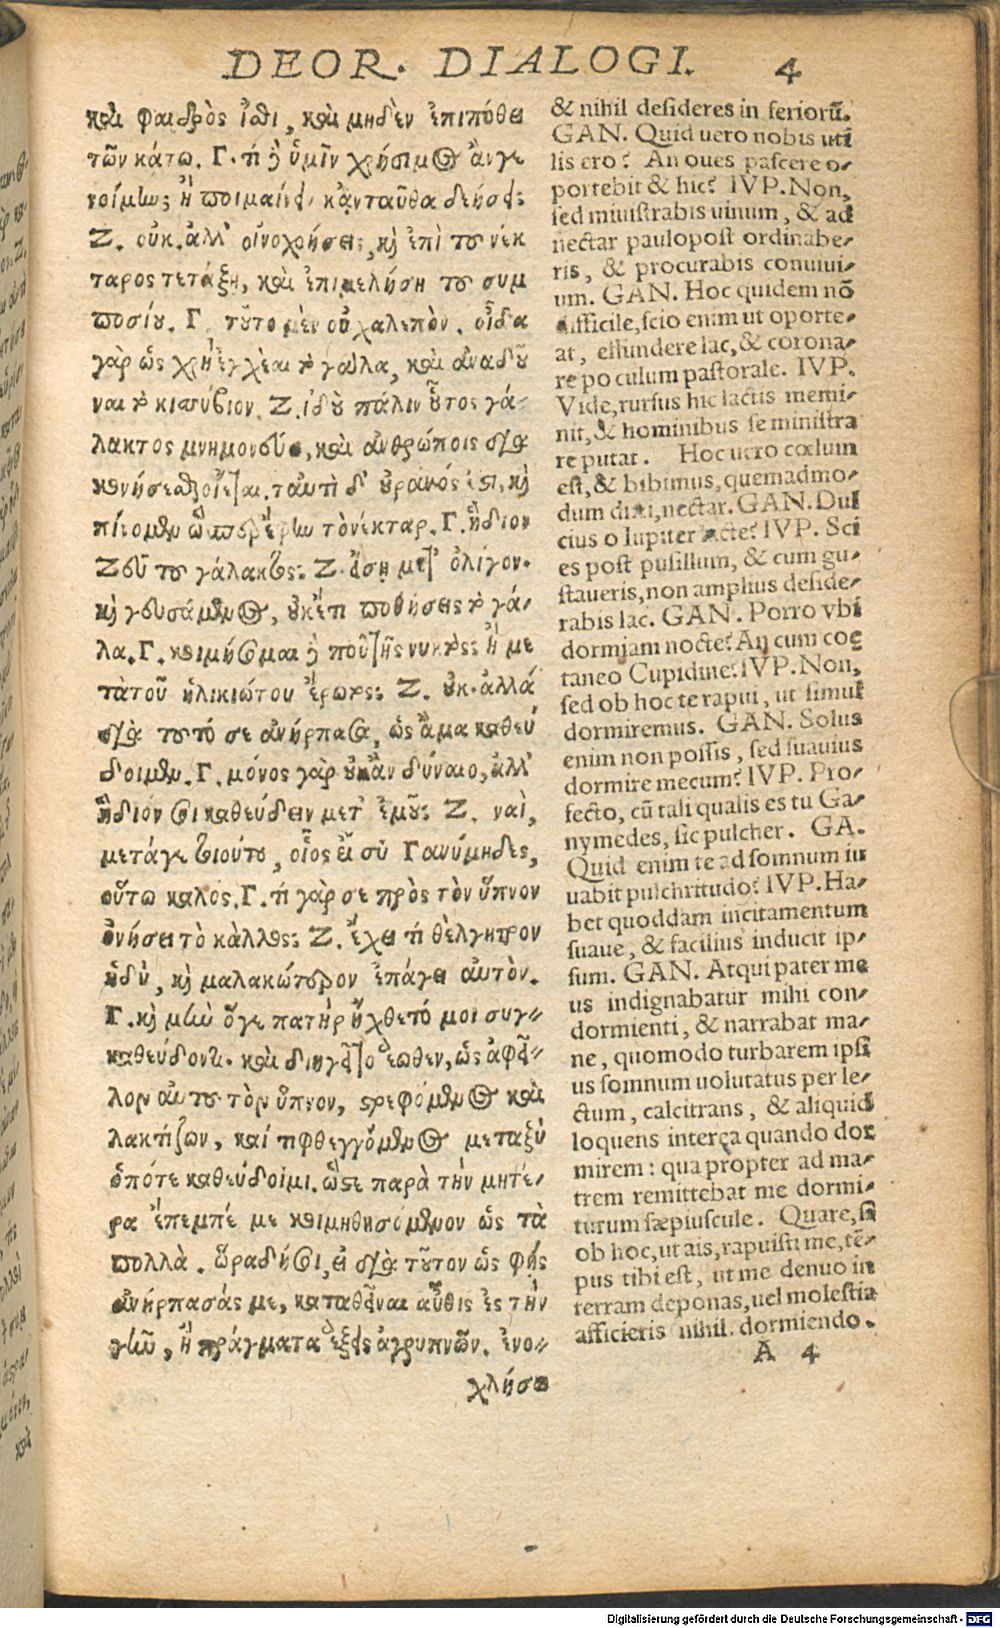 DEOR. DIALOGI. 4
καὶ φαιδρὸς ἴσθι, καὶ μηδὲν ἐπιπόθει
τῶν κάτω. Γ. τί δὲ ὑμῖν χρήσιμος ἂν γε
νοίμην; ἢ ποιμαίνειν κἀνταῦθα δεήσει;
Ζ. οὐκ. ἀλλ' οἰνοχοήσεις, καὶ ἐπὶ τοῦ νέκ
ταρος τετάξῃ, καὶ ἐπιμελήσῃ τοῦ συμ
ποσίου. Γ. τοῦτο μὲν οὐ χαλεπὸν. οἶδα
γὰρ ὡς χρὴ ἐγχέαι τὸ γάλα, καὶ ἀναδοῦ
ναι τὸ κισσύβιον. Ζ. ἰδοὺ πάλιν οὗτος γά-
λακτος μνημονεύει, καὶ ἀνθρώποις δια
κονήσεσθαι οἴεται. ταυτὶ δ' οὐρανός ἐστι, καὶ
πίνομεν ὥσπερ ἔφην τὸ νέκταρ. Γ. ἥδιον
Ζεῦ τοῦ γάλακτος; Ζ. εἴσῃ μετ' ὀλίγον.
καὶ γευσάμενος, οὐκέτι ποθήσεις τὸ γά-
λα. Γ. κοιμήσομαι δὲ ποῦ τῆς νυκτός; ἢ με
τὰ τοῦ ἡλικιώτου ἔρωτος; Ζ. οὐκ. ἀλλά
διὰ τοῦτό σε ἀνήρπασα, ὡς ἅμα καθεύ
δοιμεν. Γ. μόνος γὰρ οὐκ ἂν δύναιο, ἀλλ'
ἥδιόν σοι καθεύδειν μετ' ἐμοῦ; Ζ. ναὶ,
μετά γε τοιούτου, οἷος εἶ σὺ Γανύμηδες,
οὕτω καλός. Γ. τί γάρ σε πρὸς τὸν ὕπνον
ὀνήσει τὸ κάλλος; Ζ. ἔχει τι θέλγητρον
ἡδὺ, καὶ μαλακώτερον ἐπάγει αὐτὸν.
Γ. καὶ μὴν ὅγε πατὴρ ἤχθετό μοι συγ-
καθεύδοντι. καὶ διηγεῖτο ἕωθεν, ὡς ἀφεῖ-
λον αὐτοῦ τὸν ὕπνον, στρεφόμενος καὶ
λακτίζων, καί τι φθεγγόμενος μεταξὺ
ὁπότε καθεύδοιμι. ὥστε παρὰ τὴν μητέ-
ρα ἔπεμπέ με κοιμηθησόμενον ὡς τὰ
πολλὰ. ὥρα δή σοι, εἰ διὰ τοῦτον ὡς φῂς
ἀνήρπασάς με, καταθεῖναι αὖθις ἐς τὴν
γῆν, ἢ πράγματα ἕξεις ἀγρυπνῶν. ἐνο-
χλήσω
& nihil desideres in feriorū.
GAN. Quid uero nobis uti
lis ero? An oues pascere o-
portebit & hic? IVP. Non,
sed miuistrabis uinum, & ad
nectar paulopost ordinabe-
ris, & procurabis conuiui-
um. GAN. Hoc quidem nō
difficile, scio enim ut oporte-
at, effundere lac, & corona-
re poculum pastorale. IVP.
Vide, rursus hic lactis memi-
nit, & hominibus se ministra
re putat. Hoc uero cœlum
est, & bibimus, quemadmo-
dum dixi, nectar. GAN. Dul
cius o Iupiter lacte? IVP. Sci
es post pusillum, & cum gu-
staueris, non amplius deside-
rabis lac. GAN. Porro vbi
dormiam nocte? An cum coę
taneo Cupidine? IVP. Non,
sed ob hoc te rapui, ut simul
dormiremus. GAN. Solus
enim non possis, sed suauius
dormire mecum? IVP. Pro-
fecto, cū tali qualis es tu Ga-
nymedes, sic pulcher. GA.
Quid enim te ad somnum iu
uabit pulchritudo? IVP. Ha-
bet quoddam incitamentum
suaue, & facilius inducit ip-
sum. GAN. Atqui pater me
us indignabatur mihi con-
dormienti, & narrabat ma-
ne, quomodo turbarem ipsi
us somnum uolutatus per le-
ctum, calcitrans, & aliquid
loquens interea quando dor
mirem: quapropter ad ma-
trem remittebat me dormi-
turum sæpiuscule. Quare, si
ob hoc, ut ais, rapuisti me, tē-
pus tibi est, ut me denuo in
terram deponas, uel molestia
afficieris nihil. dormiendo.
A 4
Digitalisierung gefördert durch die Deutsche Forschungsgemeinschaft - DFG